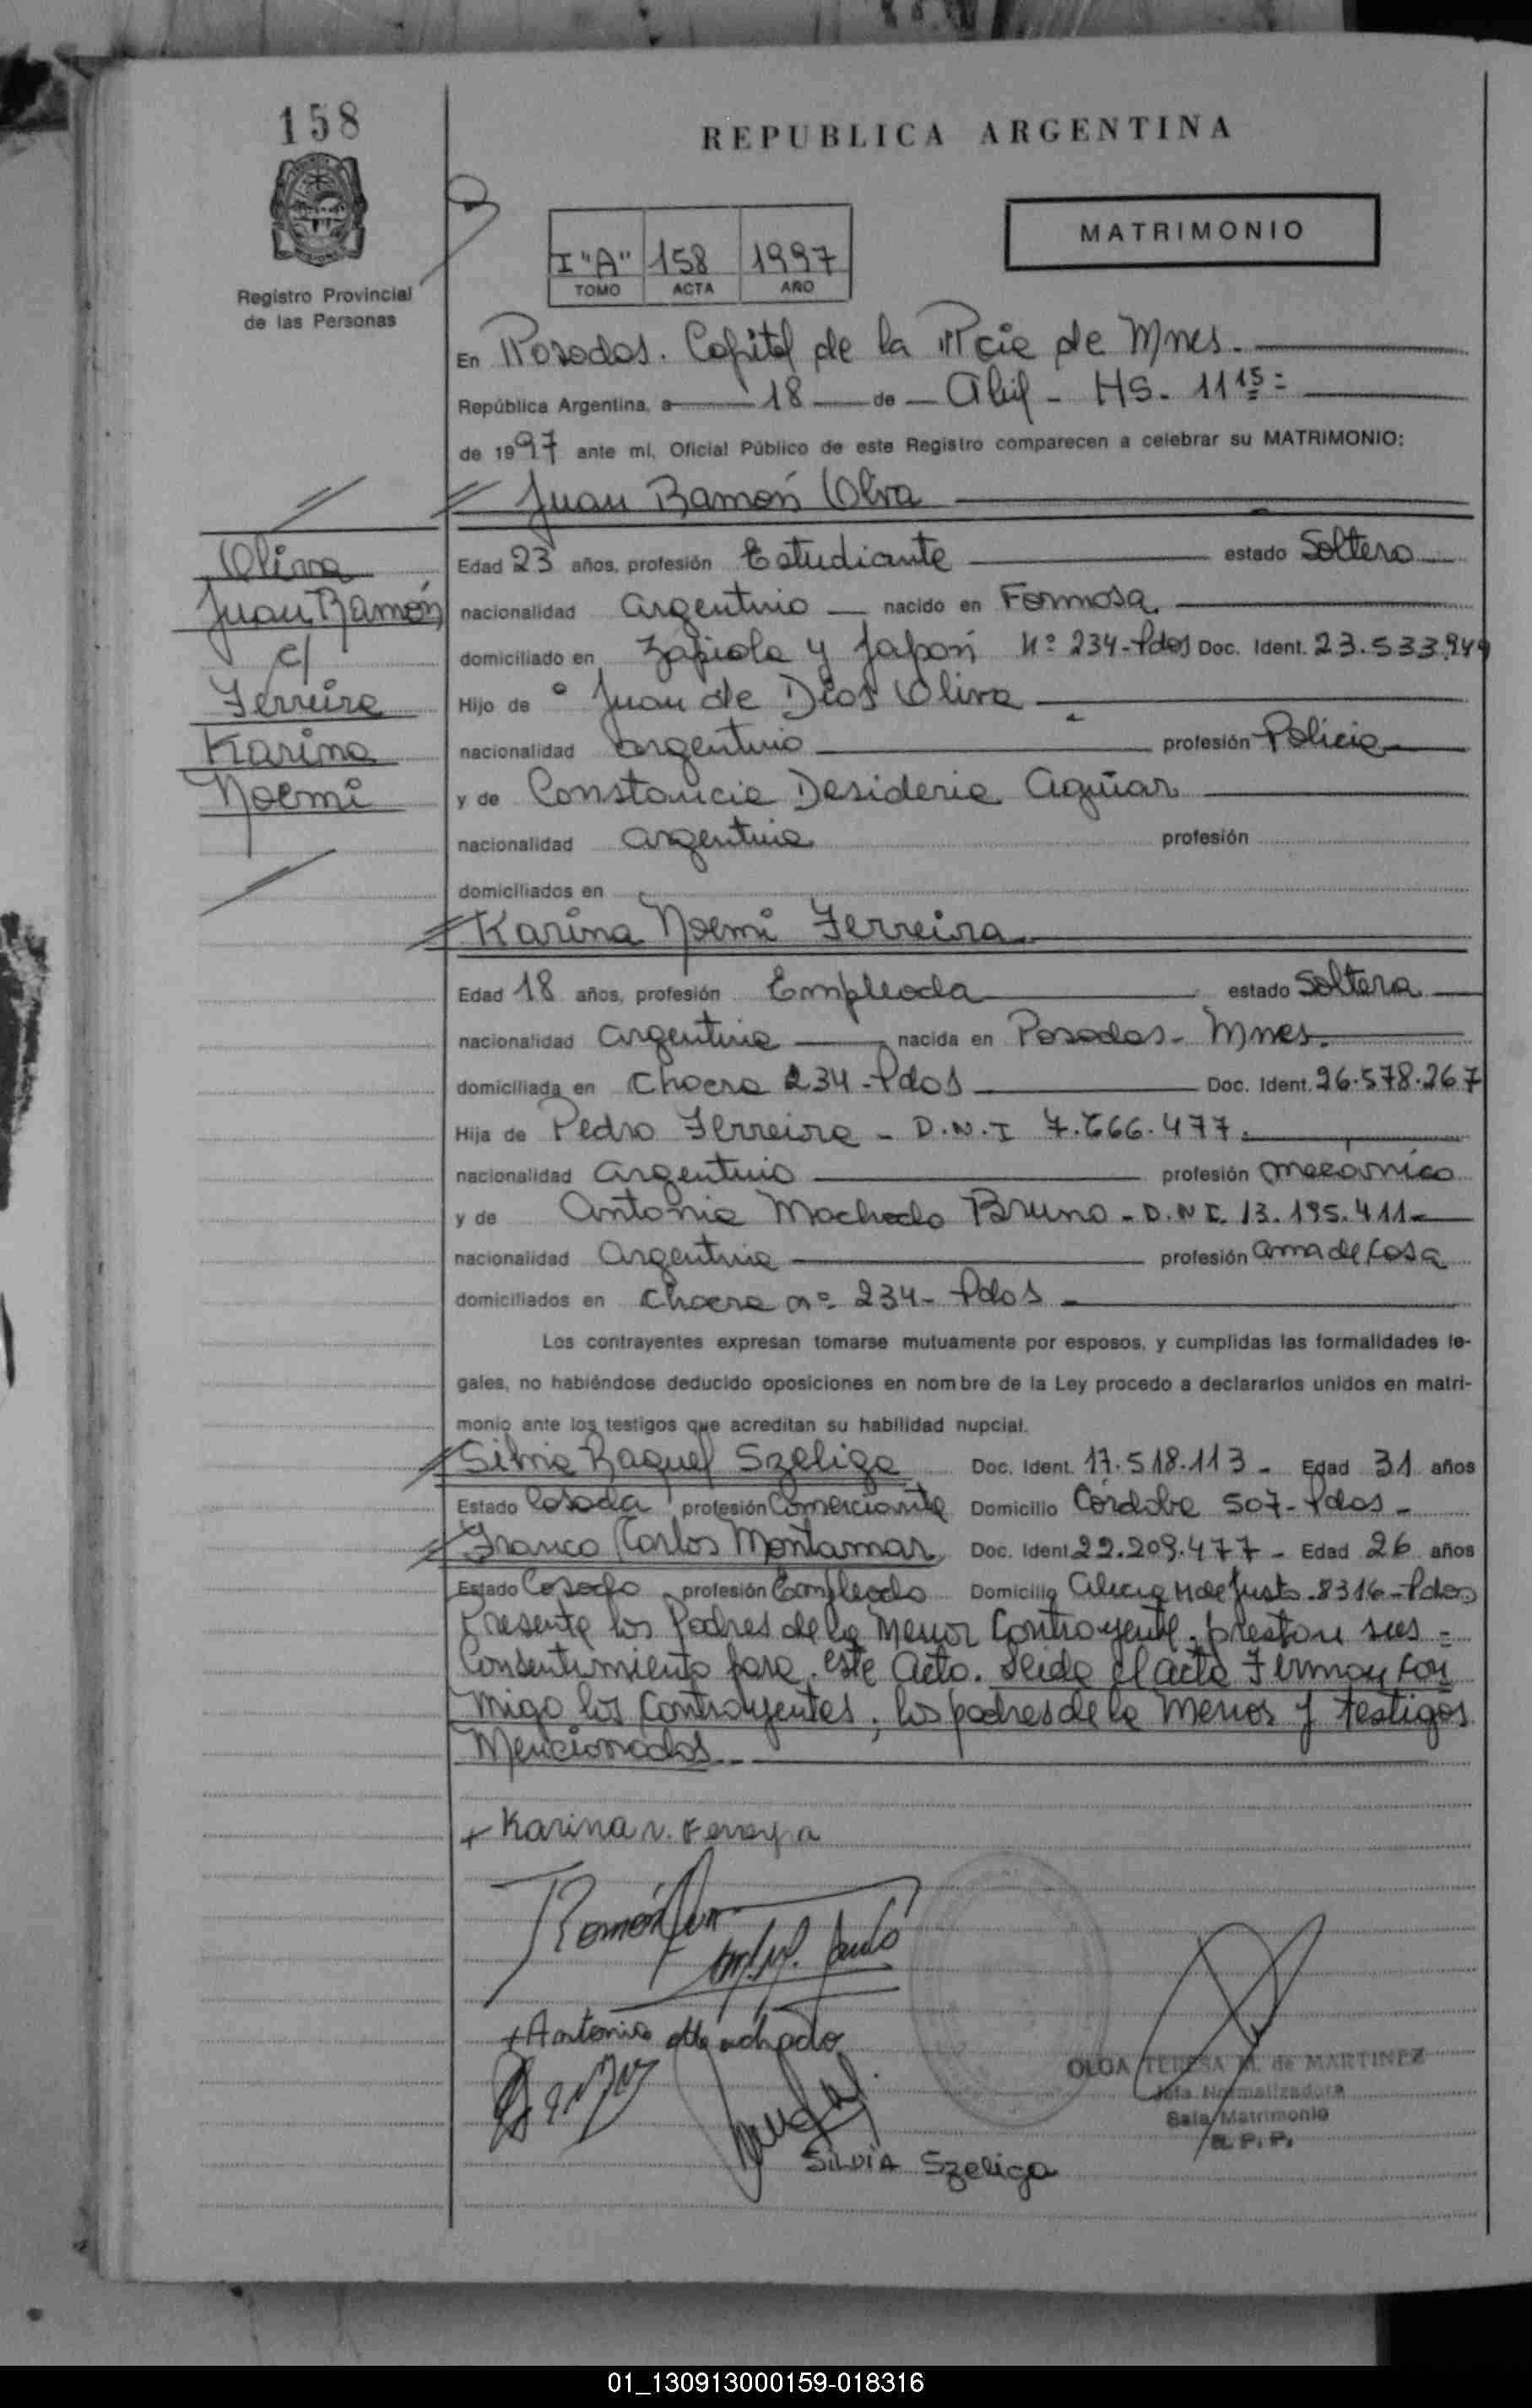 158
REPUBLICA ARGENTINA
MATRIMONIO
I "A" 158 1997
TOMO ACTA AÑO
Registro Provincial
de las Personas
En Posadas. Capital de la Pcia de Mnes.
República Argentina, a 18 de Abril - HS. 11 15=
de 1997 ante mi, Oficial Público de este Registro comparecen a celebrar su MATRIMONIO:
Juan Ramón Oliva
Oliva
Juan Ramón
c/
Ferreira
Karina
Noemi
Edad 23 años, profesión Estudiante estado Soltero
nacionalidad argentino nacido en Formosa.
domiciliado en Zapiola y Japón Nº 234-Pdas Doc. Ident. 23.533.949
Hijo de Juan de Dios Oliva
nacionalidad argentino profesión Policia
y de Constancia Desideria Aguiar
nacionalidad argentina profesión
domiciliados en
Karina Noemi Ferreira
Edad 18 años, profesión Empleada estado Soltera
nacionalidad argentina nacida en Posadas - Mnes.
domiciliada en Chacra 234-Pdas Doc. Ident. 26.578.267
Hija de Pedro Ferreira - D.N.I 7.666.477.
nacionalidad argentino profesión mecánico
y de Antonia Machado Bruno - D.N.I. 13.195.411-
nacionalidad argentina profesión ama de casa
domiciliados en Chacra nº 234- Pdas
Los contrayentes expresan tomarse mutuamente por esposos, y cumplidas las formalidades le-
gales, no habiéndose deducido oposiciones en nombre de la Ley procedo a declararlos unidos en matri-
monio ante los testigos que acreditan su habilidad nupcial.
Silvia Raquel Szeliga Doc. Ident. 17.518.113 - Edad 31 años
Estado Casada profesión Comerciante Domicilio Córdoba 507-Pdas -
Franco Carlos Montamar Doc. Ident 22.209.477 - Edad 26 años
Estado Casado profesión Empleado Domicilio Alicia M de Justo. 8316-Pdas
Presente los Padres de la Menor Contrayente, prestan sus =
Consentimiento para este Acto. Leida el acta Firman con
migo los Contrayentes, los padres de la Menor y testigos
Mencionados
+ Karina N. Ferreyra
Ramón
+ Antonia Machado
OLGA TERESA M. de MARTINEZ
Jefa Normalizadora
Sala Matrimonio
R. P. P.
SILVIA Szeliga
01_130913000159-018316